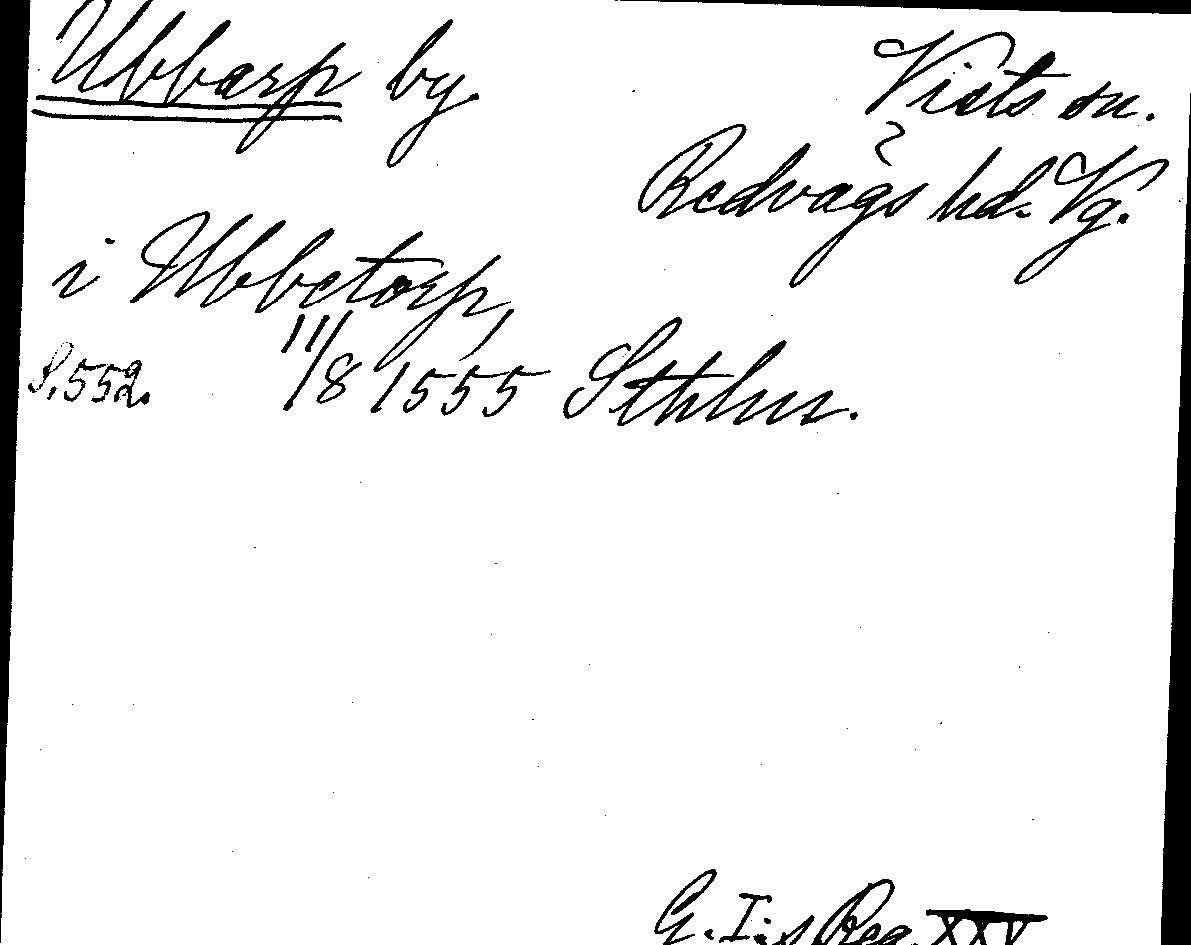 Ubbarp by.
Vists sn.
Redvägs hd. Vg.
i Ubbetorp,
S. 552. 11/8 1555 Sthlm.
G. I:s Reg. XXV